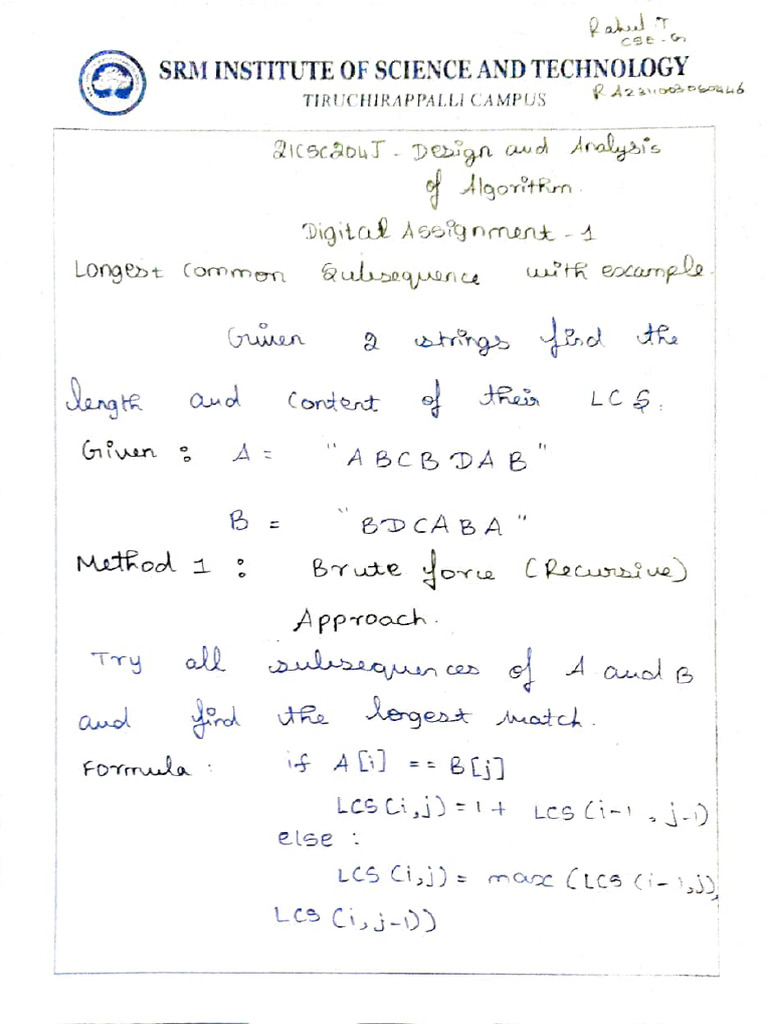 Rahul T
CSE-G
SRM INSTITUTE OF SCIENCE AND TECHNOLOGY
TIRUCHIRAPPALLI CAMPUS
RA2311003060446
21CSC204J - Design and Analysis
of Algorithm.
Digital Assignment - 1
Longest Common Subsequence with example.
Given 2 strings find the
length and content of their LCS.
Given : A = "ABCBDAB"
B = "BDCABA"
Method 1 : Brute force (Recursive)
Approach.
Try all subsequences of A and B
and find the longest match.
Formula : if A[i] == B[j]
LCS(i,j) = 1 + LCS(i-1, j-1)
else :
LCS(i,j) = max(LCS(i-1,j),
LCS(i,j-1))